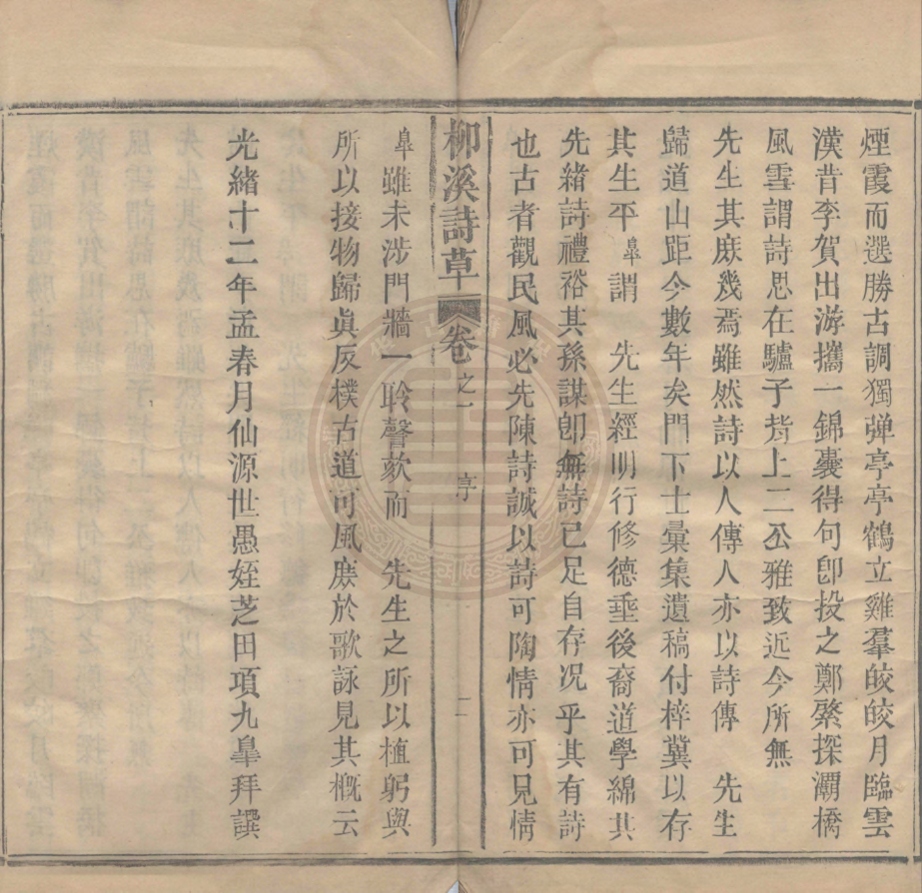 煙霞而選勝古調獨弹亭亭鶴立雞羣皎皎月臨雲
漢昔李賀出游攜一錦囊得句卽投之鄭綮探灞橋
風雪謂詩思在驢子背上二公雅致近今所無
先生其庶幾焉雖然詩以人傳人亦以詩傳　先生
歸道山距今數年矣門下士彙集遺稿付梓冀以存
其生平皐謂　先生經明行修德垂後裔道學綿其
先緒詩禮裕其孫謀卽無詩已足自存况乎其有詩
也古者觀民風必先陳詩誠以詩可陶情亦可見情
柳溪詩草　卷之一　序　二
皐雖未涉門牆一聆聲欬而　先生之所以植躬與
所以接物歸眞反樸古道可風庶於歌詠見其概云
光緒十二年孟春月仙源世愚姪芝田項九皐拜譔